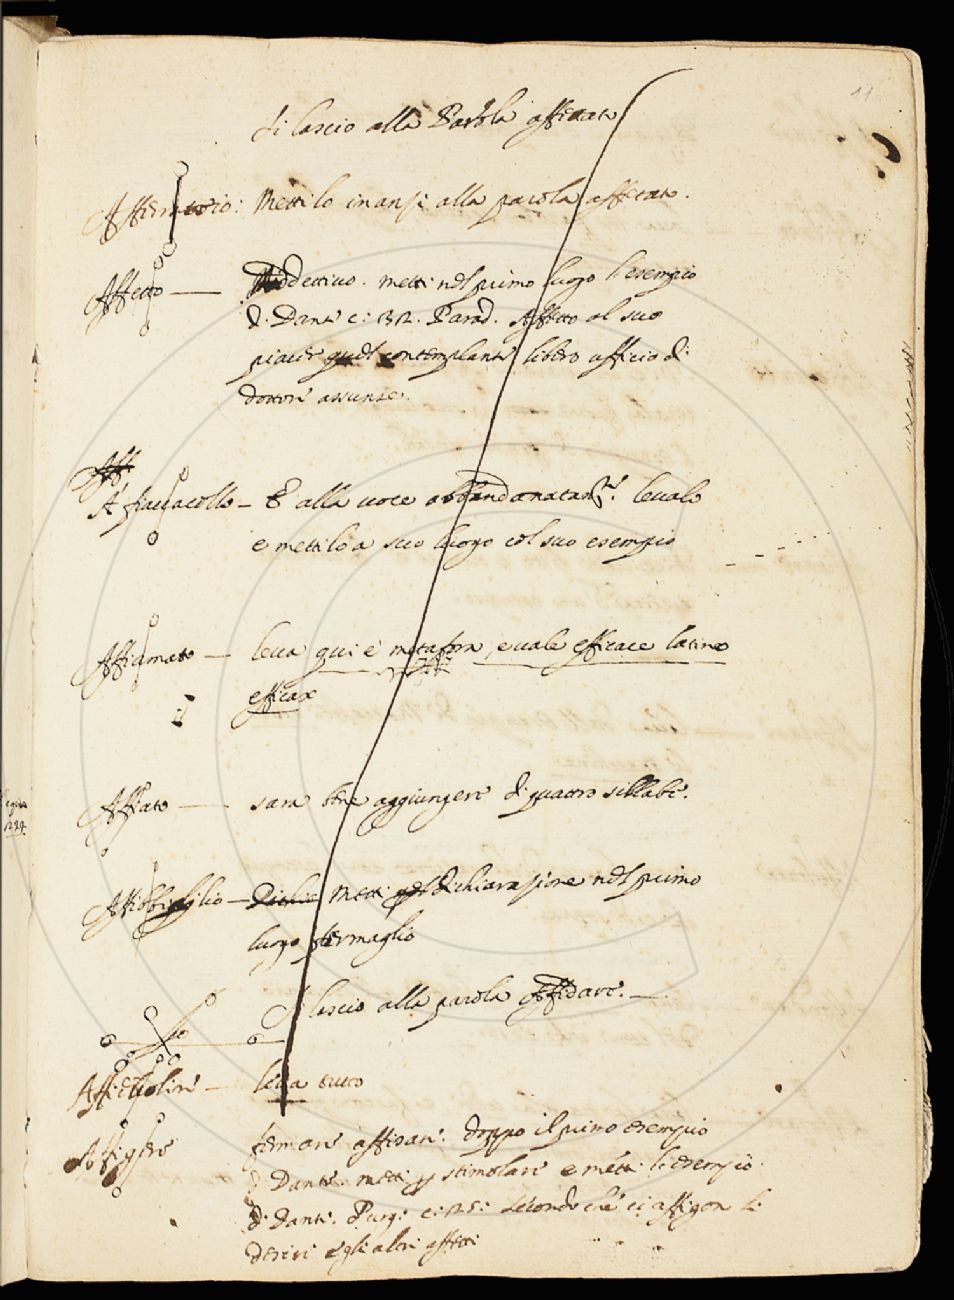 11
si lascio alla Parola affettato
Affermatorio: Mettilo inansi alla parola affettato.
Affetto — Addettivo. metti nel primo luogo l'esempio
di Dante c: 32. Parad. Affetto al suo
piacer quel contemplante libero ufficio di
dottore assunse.
A fiaccacollo — È alla voce abbandonatam.te levalo
e mettilo a suo luogo col suo esempio
leva qui è metafora, e vale efficace latino
efficax
Affiato — sara bene aggiungere di quattro sillabe.
Affibbiaglio — Metti dichiarasione nel primo
luogo fermaglio
Si lascio alla parola Affidare. —
leva tutto
Affigere fermare affissare. doppo il primo esempio
di Dante. metti stimolare e metti l'esempio
di Dante. Purg: c: 25: secondo che ci affigon li
desiri e gli altri affetti